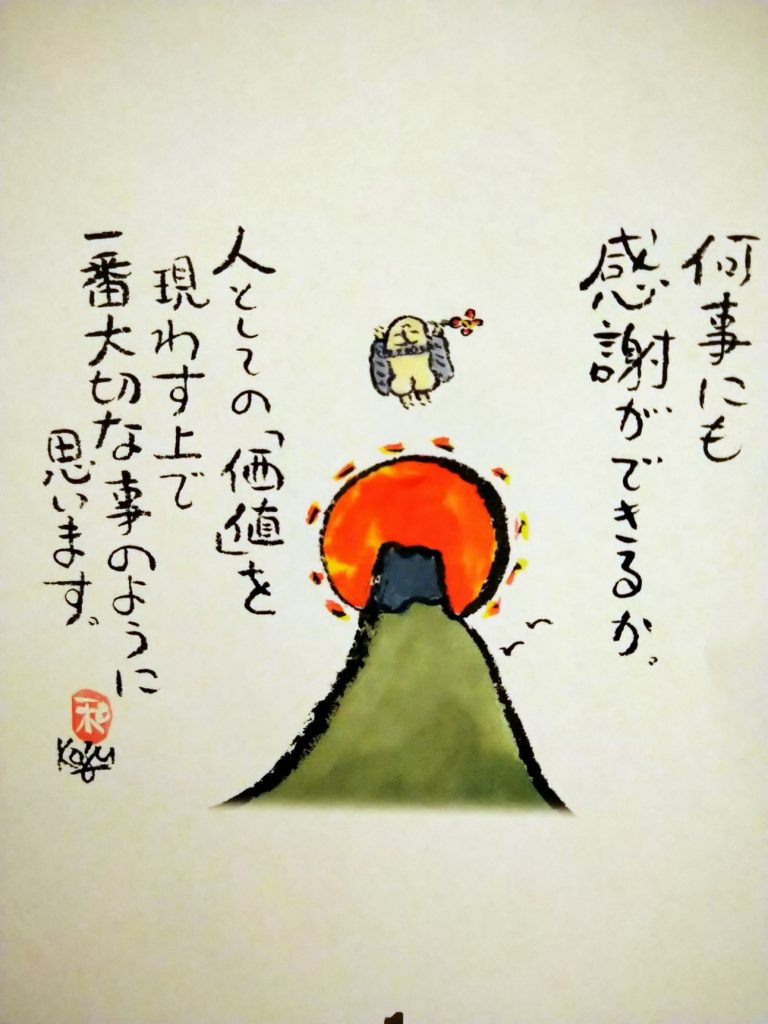 何事にも
感謝ができるか。
人としての「価値」を
現わす上で
一番大切な事のように
思います。
和
Kazu